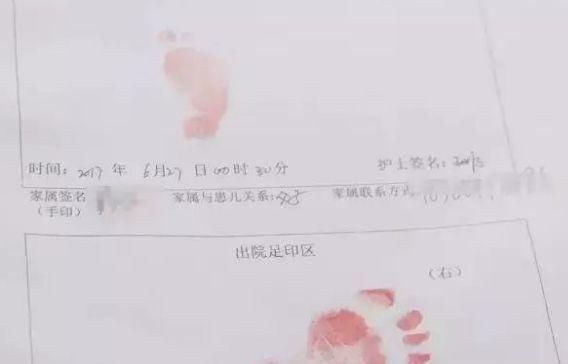 时间：2017 年 6月27 日 00 时 30 分 护士签名：
家属签名 家属与患儿关系： 家属联系方式
（手印）
出院足印区
（右）